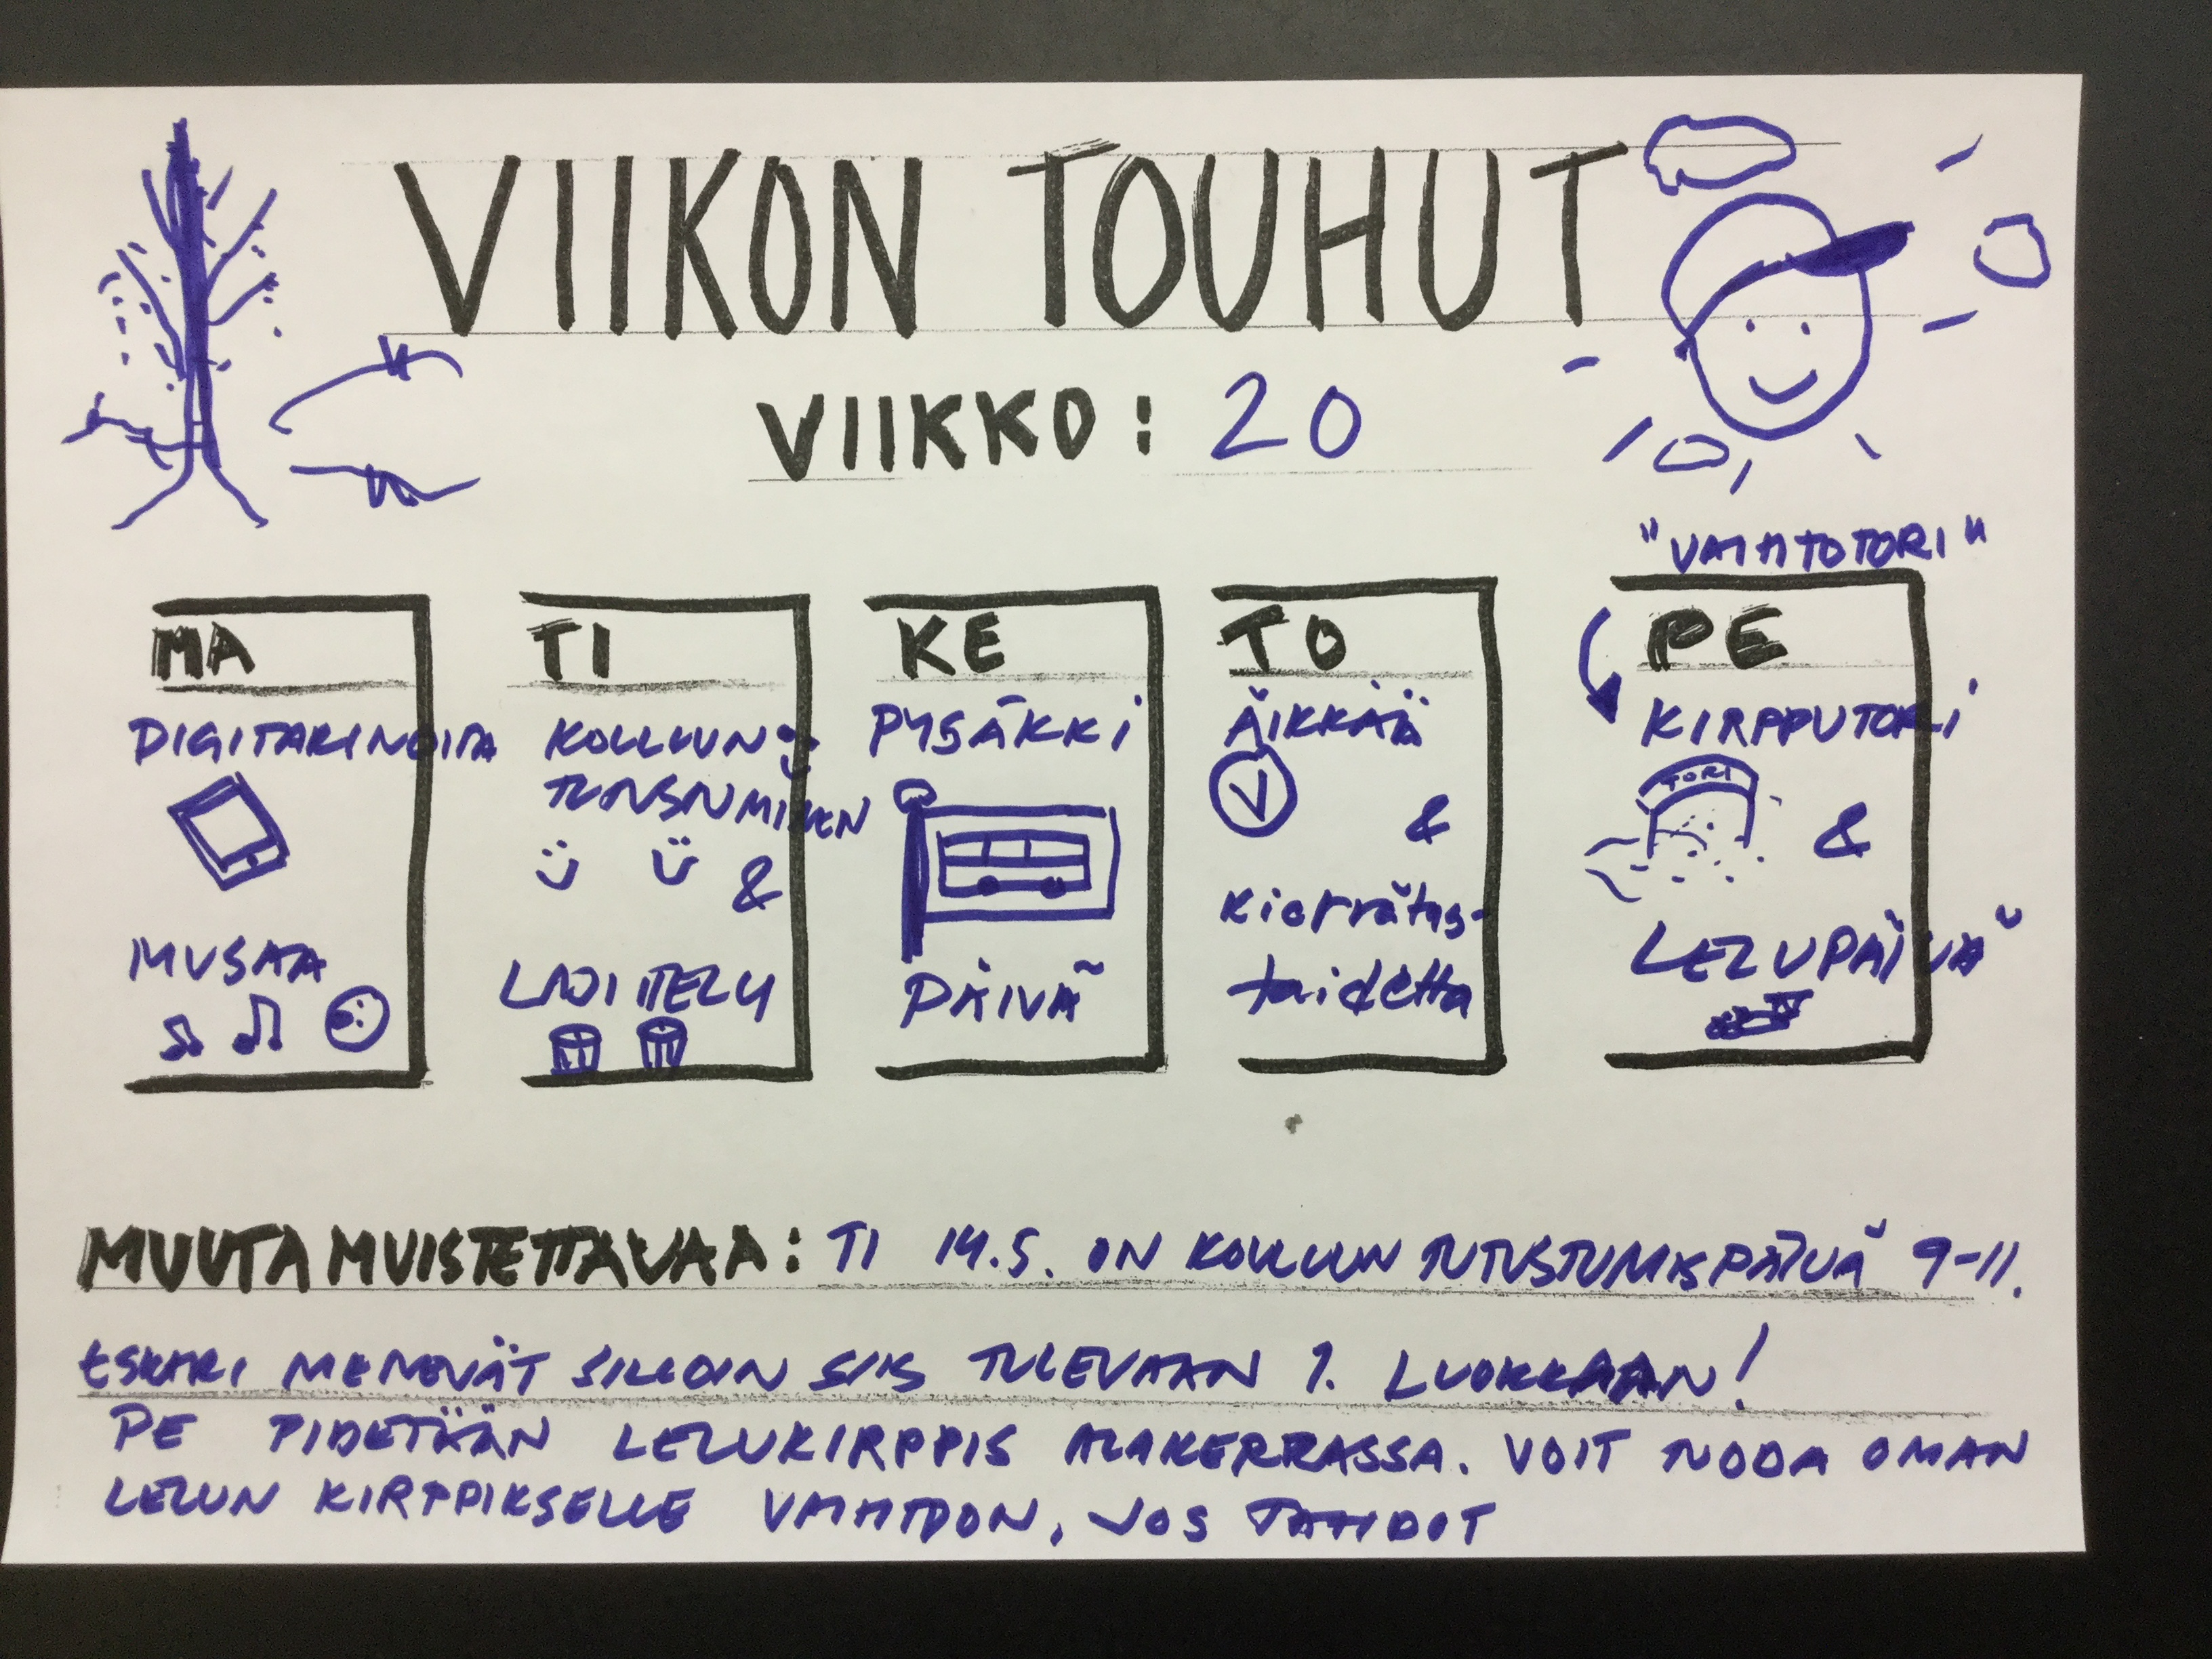 VIIKON TOUHUT
VIIKKO: 20
"VAIHTOTORI"
MA
DIGITARINOITA
MUSAA
TI
KOULUUN
TUTUSTUMINEN
&
LAJITTELU
KE
PYSÄKKI
PÄIVÄ
TO
ÄIKKÄÄ
V
&
Kierrätys-
taidetta
PE
KIRPPUTORI
TORI
&
LELUPÄIVÄ
MUUTA MUISTETTAVAA: TI 14.5. ON KOULUUN TUTUSTUMISPÄIVÄ 9-11.
ESKARI MENEVÄT SILLOIN SIIS TULEVAAN 1. LUOKKAAN!
PE PIDETÄÄN LELUKIRPPIS ALAKERRASSA. VOIT TUODA OMAN
LELUN KIRPPIKSELLE VAIHTOON, JOS TAHDOT